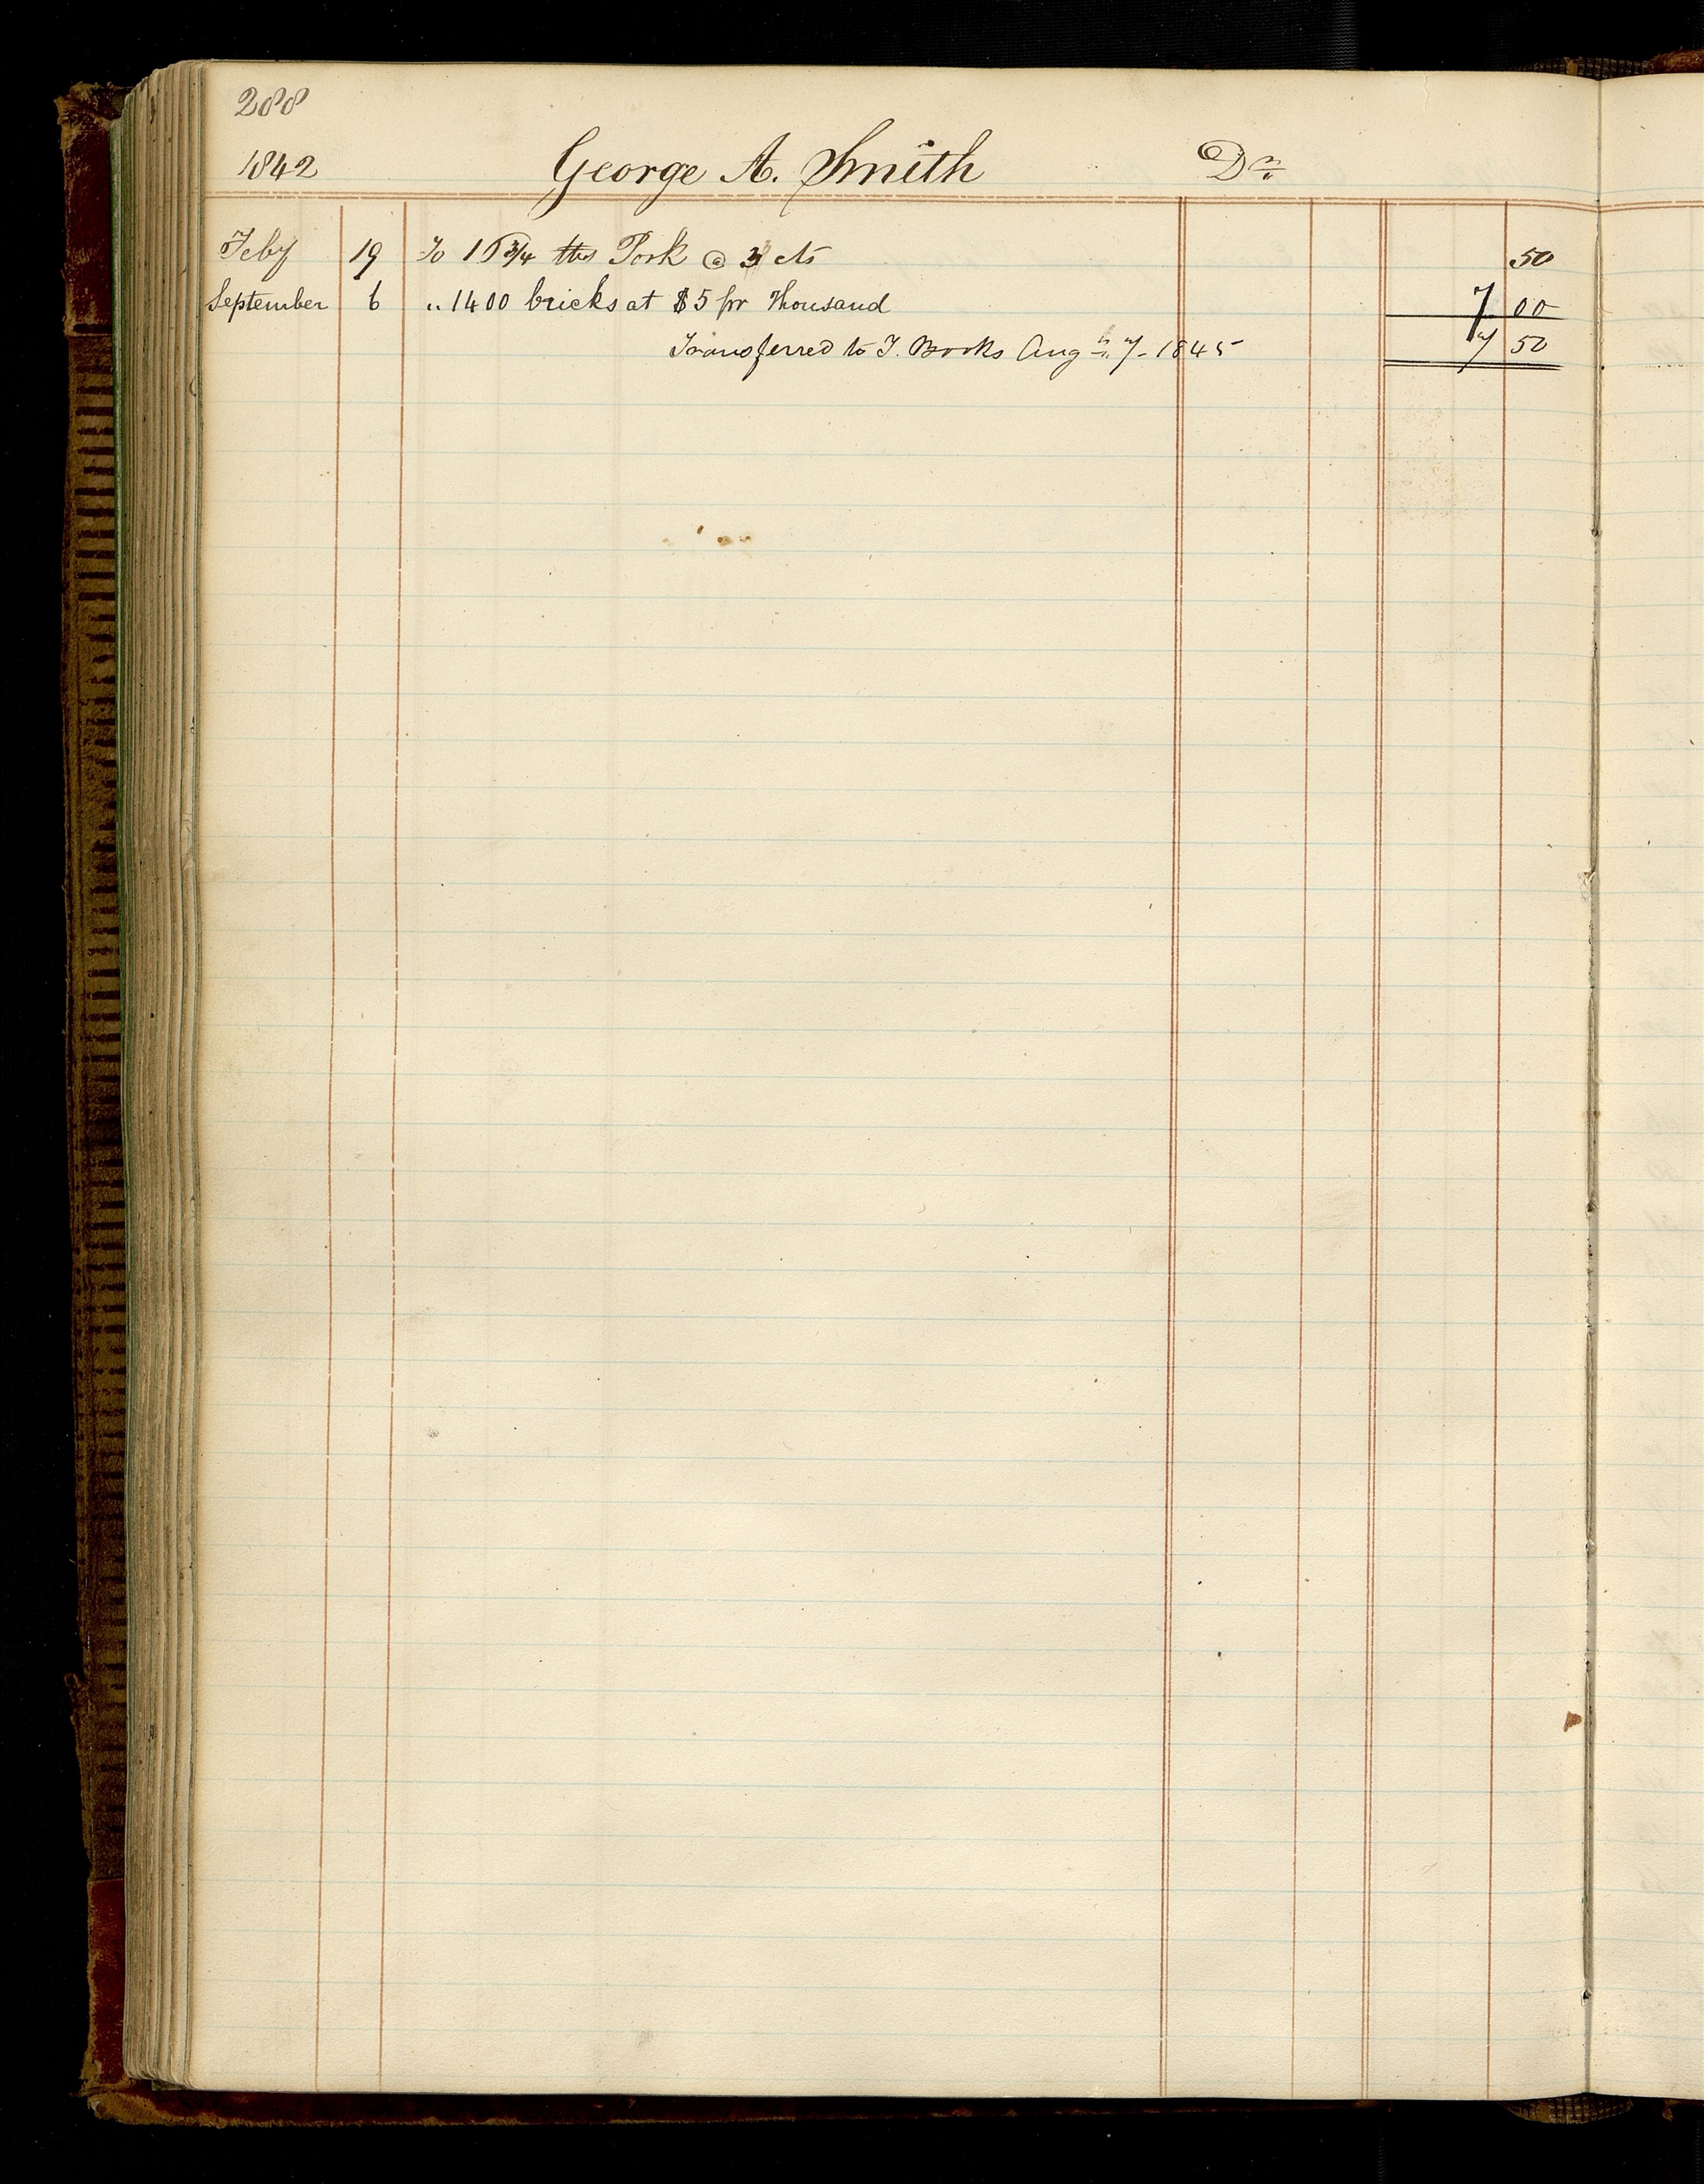 288
1842 George A. Smith Dr.
Feby 19 To 16 3/4 lbs Pork @ 3 cts 50
September 6 " 1400 bricks at $5 pr Thousand 7 00
Transferred to T. Books Aug 7 - 1845 7 50